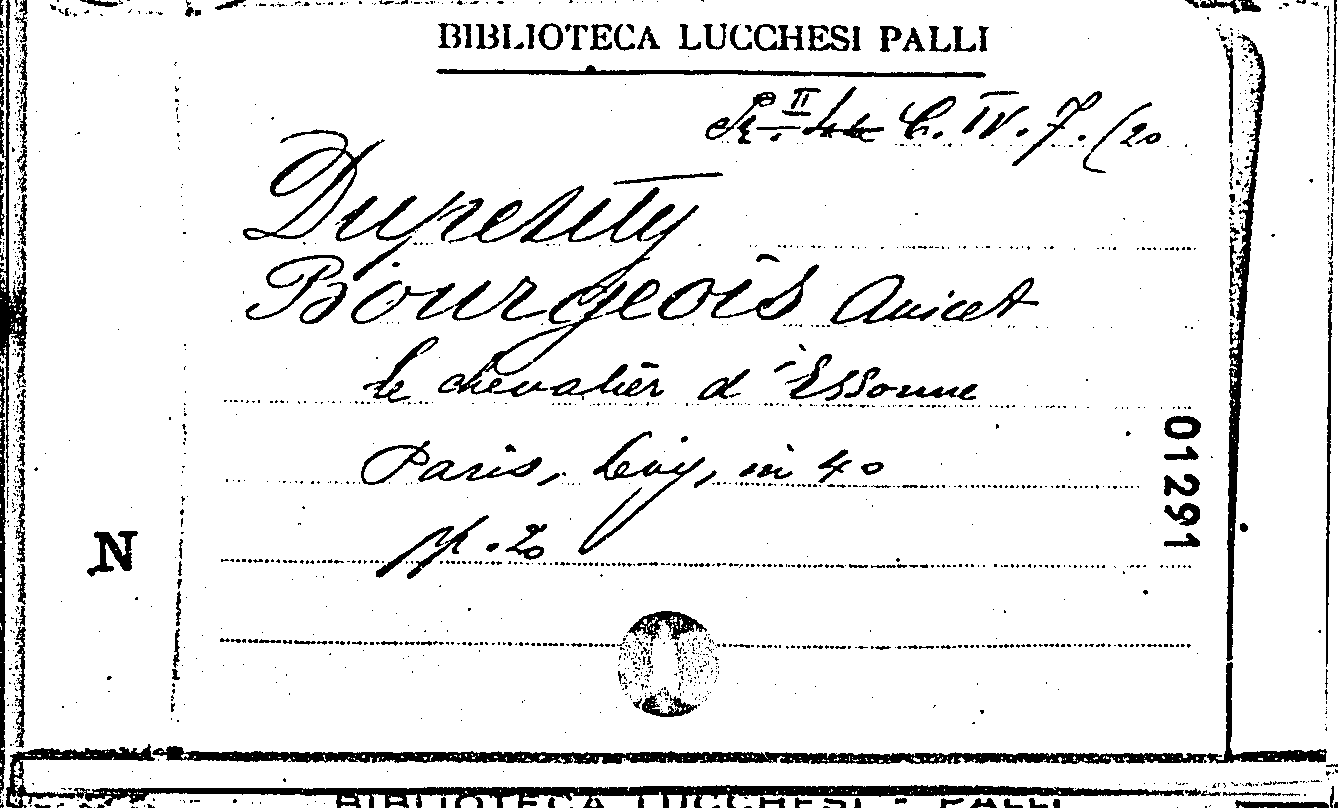 BIBLIOTECA LUCCHESI PALLI
C. IV. 7. (20
Dupetity
Bourgeois Anicet
le chevalier d'Essonne
Paris, Levy, in 4o
pp. 20
01291
N
BIBLIOTECA LUCCHESI - PALLI